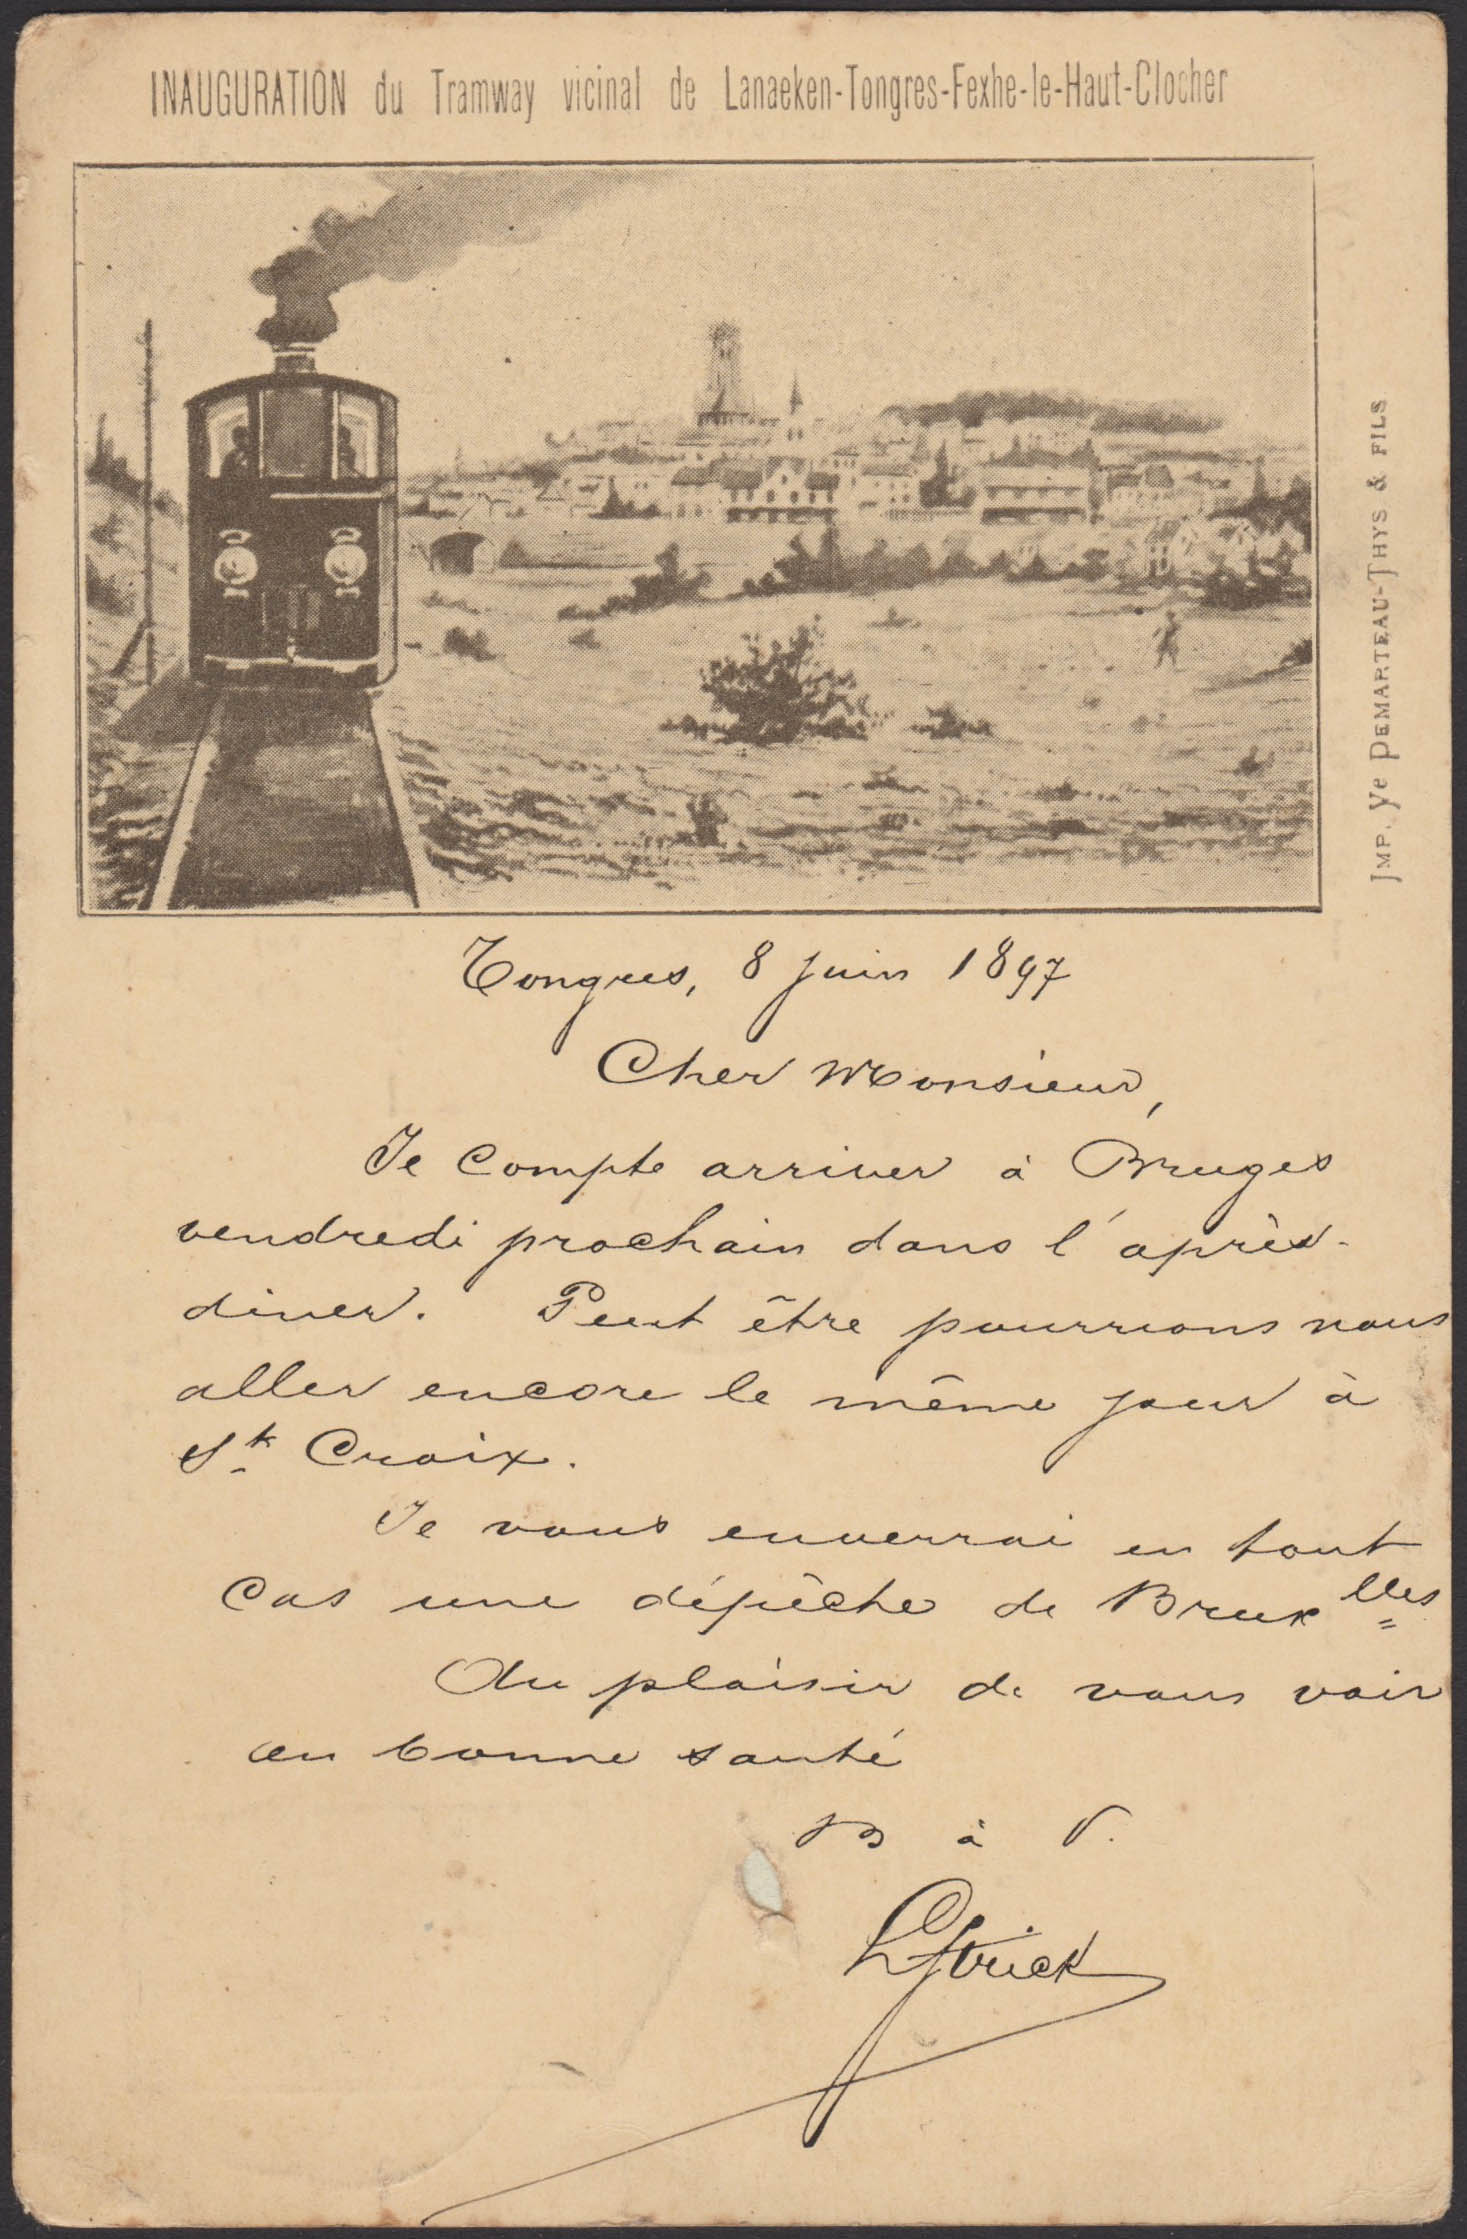 INAUGURATION du Tramway vicinal de Lanaeken-Tongres-Fexhe-le-Haut-Clocher
IMP. Ve DEMARTEAU-THYS & FILS
Tongres, 8 juin 1897
Cher Monsieur,
Je compte arriver à Bruges
vendredi prochain dans l'après-
diner. Peut être pourrions nous
aller encore le même jour à
St. Croix.
Je vous enverrai en tout
cas une dépêche de Bruxlles
Au plaisir de vous voir
en bonne santé
B à V.